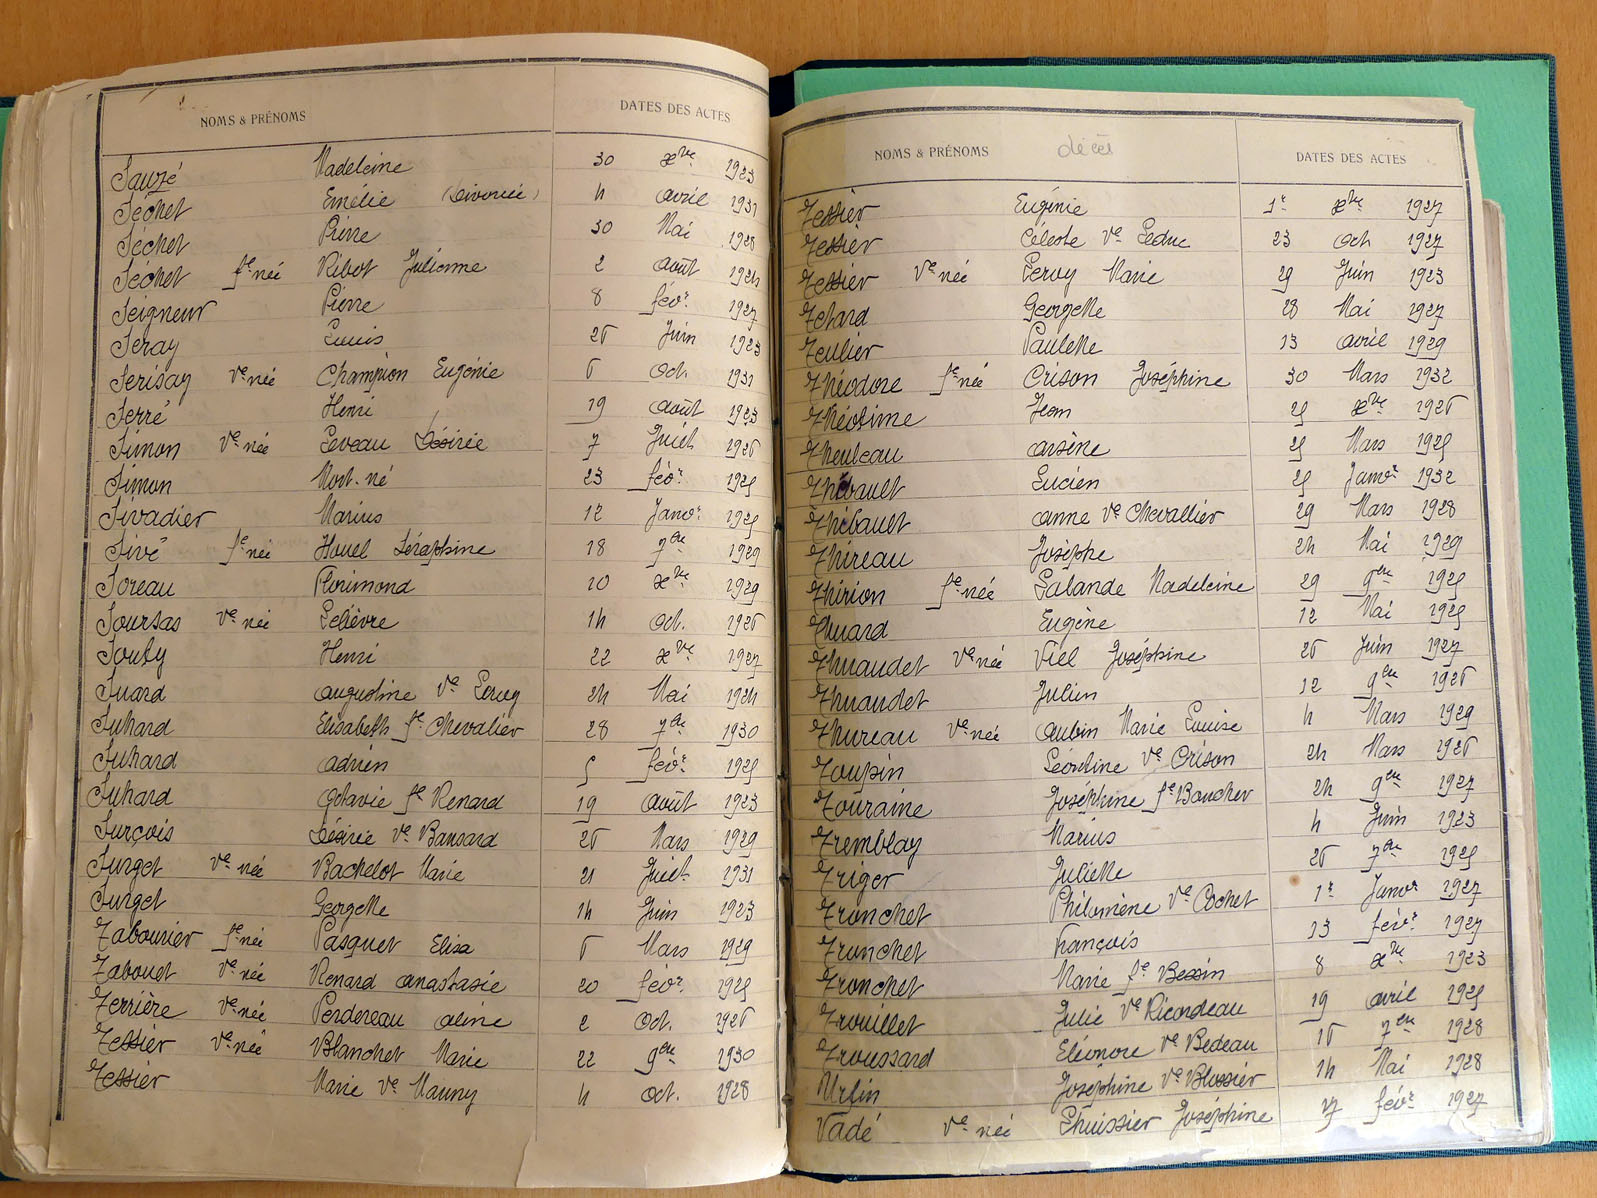 NOMS & PRÉNOMS DATES DES ACTES
Sauzé Madeleine 30 xbre 1923
Séchet Emélie (Divorcée) 4 avril 1931
Séchet Pierre 30 Mai 1928
Séchet fe née Ribot Julienne 2 août 1924
Seigneur Pierre 8 févr 1927
Seray Louis 26 Juin 1923
Serisay Ve née Champion Eugénie 6 Oct. 1931
Serré Henri 19 août 1923
Simon Ve née Leveau Désirée 7 Juilt 1926
Simon Mort-né 23 févr 1925
Sivadier Marius 12 Janvr 1925
Sivé fe née Houel Séraphine 18 7bre 1929
Soreau Florimond 10 xbre 1929
Soursas Ve née Lelièvre 14 Oct. 1926
Souty Henri 22 xbre 1927
Suard augustine Ve Leroy 24 Mai 1924
Suhard Elisabeth fe Chevalier 28 7bre 1930
Suhard adrien 5 févr 1925
Suhard Octavie fe Renard 19 août 1923
Surçois Désirée Ve Bansard 26 Mars 1929
Surget Ve née Bachelot Marie 21 Juilt 1931
Surget Georgette 14 Juin 1923
Tabourier fe née Pasquer Elisa 6 Mars 1929
Tabouet Ve née Renard anastasie 20 févr 1925
Terrière Ve née Perdereau aline 2 Oct. 1926
Tessier Ve née Blanchet Marie 22 9bre 1930
Tessier Marie Ve Mauny 4 Oct. 1928
NOMS & PRÉNOMS décès DATES DES ACTES
Tessier Eugénie 1er xbre 1927
Tessier Céleste Ve Leduc 23 Oct 1927
Tessier Ve née Leroy Marie 29 Juin 1923
Tetard Georgette 28 Mai 1927
Teulier Paulette 13 avril 1929
Théodore fe née Crison Joséphine 30 Mars 1932
Théotime Jean 25 xbre 1926
Theuleau arsène 25 Mars 1925
Thébault Lucien 25 Janvr 1932
Thébault anne Ve Chevallier 29 Mars 1928
Thireau Josèphe 24 Mai 1929
Thirion fe née Lalande Madeleine 29 9bre 1925
Thuard Eugène 12 Mai 1925
Thuaudet Ve née Viel Joséphine 26 Juin 1927
Thuaudet Julien 12 9bre 1926
Thureau Ve née aubin Marie Louise 4 Mars 1929
Toupin Léontine Ve Crison 24 Mars 1926
Touraine Joséphine fe Boucher 24 9bre 1927
Tremblay Marius 4 Juin 1923
Triger Juliette 26 7bre 1925
Tronchet Philomène Ve Cochet 1er Janvr 1927
Tronchet François 13 févr 1927
Tronchet Marie fe Bessin 8 xbre 1923
Trouillet Julie Ve Ricordeau 19 avril 1925
Troussard Eléonore Ve Bedeau 16 7bre 1928
Urfin Joséphine Ve Blossier 14 Mai 1928
Vadé Ve née Lhuissier Joséphine 17 févr 1927